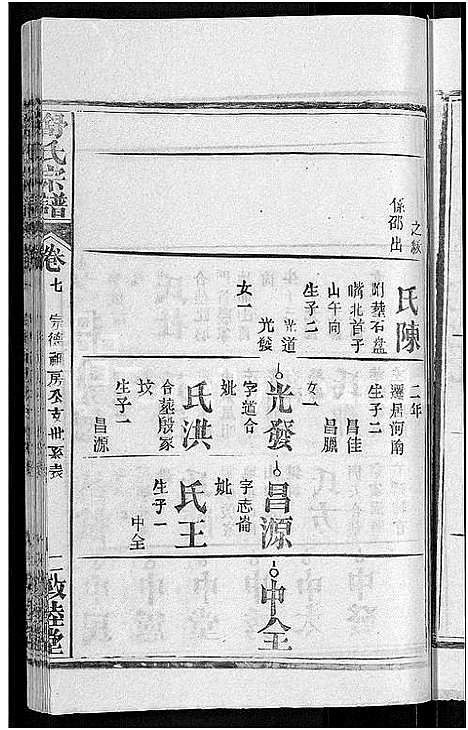 之叔
係邵出
氏陳
附塟石盤
嘴北首子
山午向
生子二
光道
光發
女一
二年
遷居河南
生子二
昌佳
昌臘
女一
光發
字道合
妣
氏洪
合塟殷冢
坟
生子一
昌源
昌源
字志崙
妣
氏王
生子一
中全
中全
舒氏宗譜
卷七
宗德
房
支世系表
二
敦睦堂